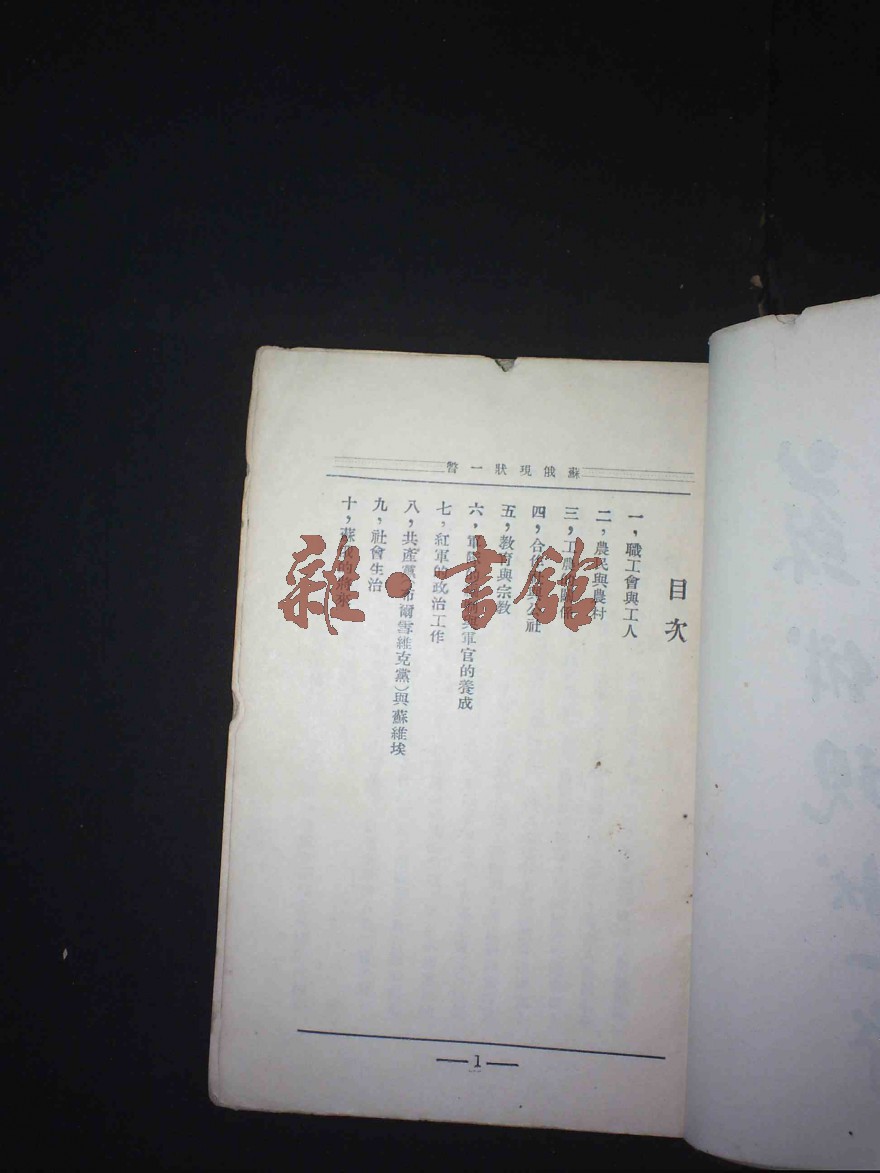 蘇俄現狀一瞥
目次
一，職工會與工人
二，農民與農村
三，工農的關係
四，合作社與公社
五，教育與宗教
六，軍隊 軍官的養成
七，紅軍的政治工作
八，共產黨（布爾雪維克黨）與蘇維埃
九，社會生治
十，蘇俄的將來
1
雜·書館